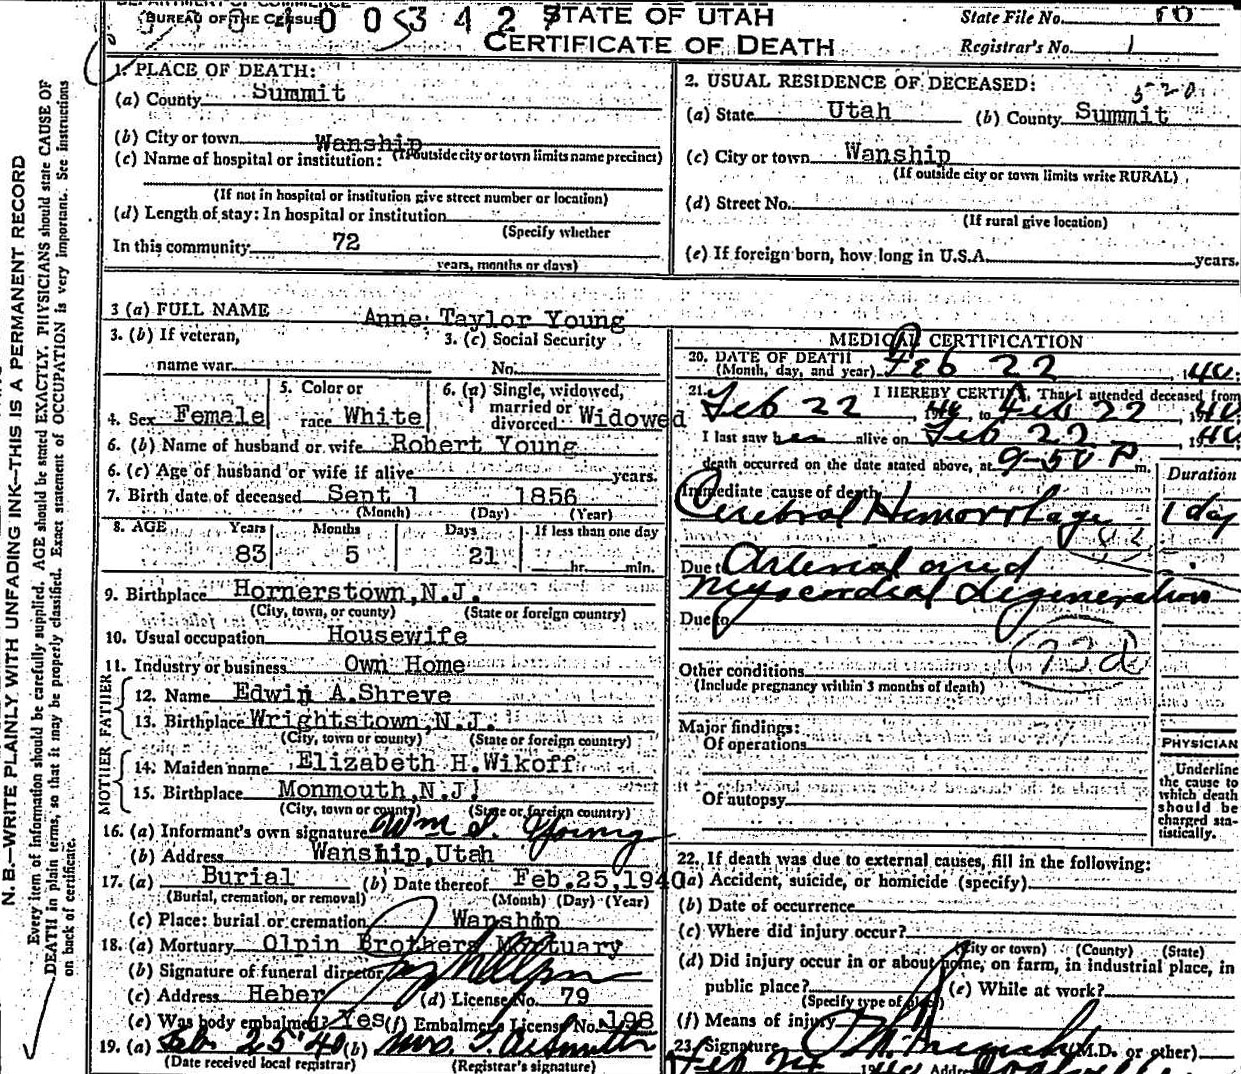 DEPARTMENT OF COMMERCE
BUREAU OF THE CENSUS
STATE OF UTAH
CERTIFICATE OF DEATH
State File No. 10
Registrar's No. 1
N. B.—WRITE PLAINLY WITH UNFADING INK—THIS IS A PERMANENT RECORD
Every item of information should be carefully supplied. AGE should be stated EXACTLY. PHYSICIANS should state CAUSE OF
DEATH in plain terms, so that it may be properly classified. Exact statement of OCCUPATION is very important. See instructions
on back of certificate.
1. PLACE OF DEATH:
(a) County Summit
(b) City or town Wanship
(If outside city or town limits name precinct)
(c) Name of hospital or institution:
(If not in hospital or institution give street number or location)
(d) Length of stay: In hospital or institution
(Specify whether
In this community 72
years, months or days)
2. USUAL RESIDENCE OF DECEASED:
520
(a) State Utah (b) County Summit
(c) City or town Wanship
(If outside city or town limits write RURAL)
(d) Street No.
(If rural give location)
(e) If foreign born, how long in U.S.A. years.
3 (a) FULL NAME Anne Taylor Young
3. (b) If veteran, name war
3. (c) Social Security No.
4. Sex Female
5. Color or race White
6. (a) Single, widowed, married or divorced Widowed
6. (b) Name of husband or wife Robert Young
6. (c) Age of husband or wife if alive years.
7. Birth date of deceased Sept 1 1856
(Month) (Day) (Year)
8. AGE Years Months Days If less than one day
83 5 21 hr. min.
9. Birthplace Hornerstown, N.J.
(City, town, or county) (State or foreign country)
10. Usual occupation Housewife
11. Industry or business Own Home
FATHER
12. Name Edwin A. Shreve
13. Birthplace Wrightstown, N.J.
(City, town or county) (State or foreign country)
MOTHER
14. Maiden name Elizabeth H. Wikoff
15. Birthplace Monmouth, N.J.
(City, town or county) (State or foreign country)
16. (a) Informant's own signature Wm S. Young
(b) Address Wanship, Utah
17. (a) Burial (b) Date thereof Feb. 25, 1940
(Burial, cremation, or removal) (Month) (Day) (Year)
(c) Place: burial or cremation Wanship
18. (a) Mortuary Olpin Brothers Mortuary
(b) Signature of funeral director
(c) Address Heber (d) License No. 79
(e) Was body embalmed? Yes (f) Embalmers License No. 198
19. (a) Feb. 25 '40 (b) Mrs.
(Date received local registrar) (Registrar's signature)
MEDICAL CERTIFICATION
20. DATE OF DEATH
(Month, day, and year) Feb 22, 1940
21. I HEREBY CERTIFY, That I attended deceased from
Feb 22, 1940 to Feb 22, 1940
I last saw her alive on Feb 22 1940
death occurred on the date stated above, at 9-50 P m.
Duration
Immediate cause of death
Cerebral Hemorrhage 1 day
Due to Arterial and
Myocardial degeneration
Due to
Other conditions
(Include pregnancy within 3 months of death)
Major findings:
Of operations
Of autopsy
PHYSICIAN
Underline
the cause to
which death
should be
charged sta-
tistically.
22. If death was due to external causes, fill in the following:
(a) Accident, suicide, or homicide (specify)
(b) Date of occurrence
(c) Where did injury occur?
(City or town) (County) (State)
(d) Did injury occur in or about home, on farm, in industrial place, in
public place? (e) While at work?
(Specify type of place)
(f) Means of injury
23. Signature (M.D. or other)